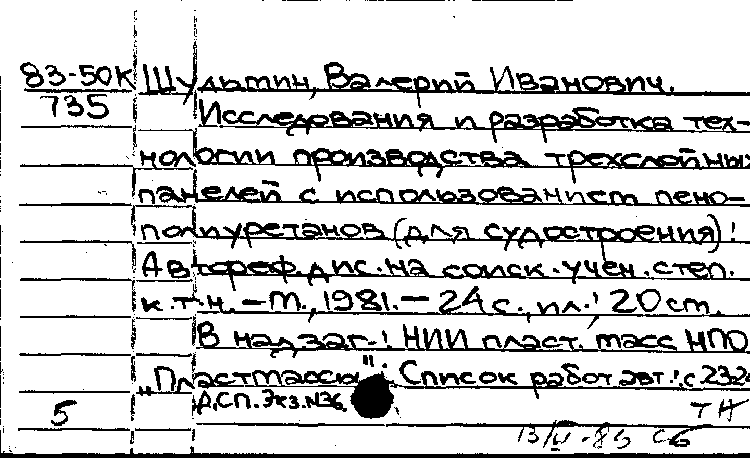 83-50К Шульгин, Валерий Иванович.
735 Исследования и разработка тех-
нологии производства трехслойных
панелей с использованием пено-
полиуретанов (для судостроения):
Автореф. дис. на соиск. учен. степ.
к.т.н. - М., 1981. - 24 с., ил.; 20 см.
В надзаг.: НИИ пласт. масс НПО
"Пластмассы". Список работ авт.: с 23-2
ДСП. Экз. №36.
5 ТН
13/IV-83 сб